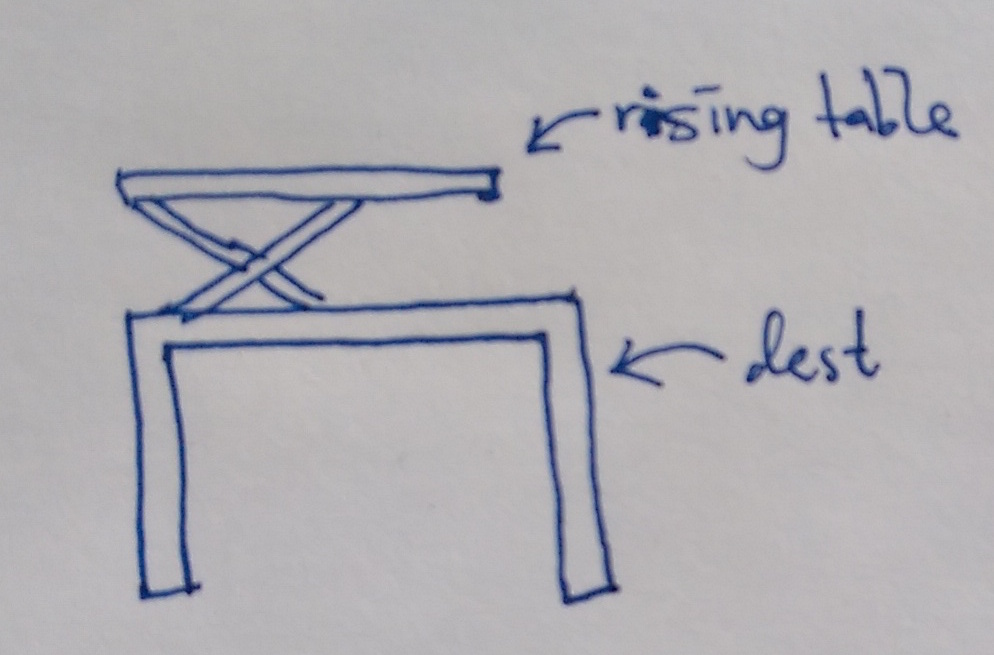 rising table
dest